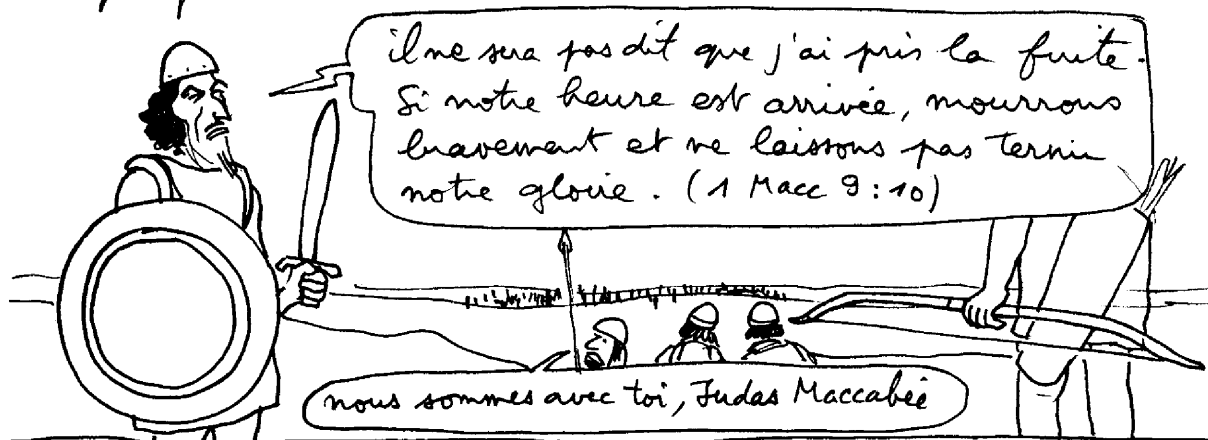 il ne sera pas dit que j'ai pris la fuite.
Si notre heure est arrivée, mourrons
bravement et ne laissons pas ternir
notre gloire. (1 Macc 9:10)
nous sommes avec toi, Judas Maccabée